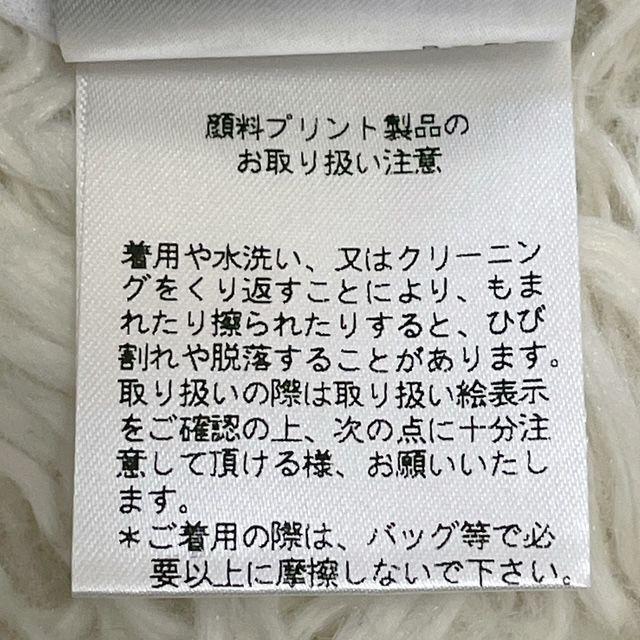 顔料プリント製品の
お取り扱い注意
着用や水洗い、又はクリーニン
グをくり返すことにより、もま
れたり擦られたりすると、ひび
割れや脱落することがあります。
取り扱いの際は取り扱い絵表示
をご確認の上、次の点に十分注
意して頂ける様、お願いいたし
ます。
＊ご着用の際は、バッグ等で必
要以上に摩擦しないで下さい。